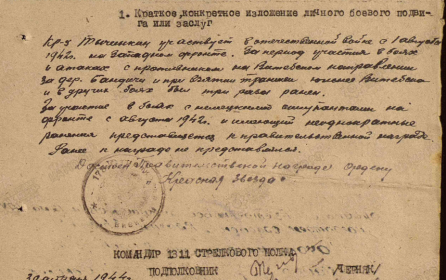 1. Краткое, конкретное изложение личного боевого подви-
га или заслуг
Кр-ц участвует в отечественной войне с августа
1942г. на Западном фронте. За период участия в боях
и атаках с противником на Витебском направлении
за дер. и при взятии траншеи южнее Витебска
и в других боях был три раза ранен.
За участие в боях с немецкими оккупантами на
фронте с августа 1942г. и имеющий неоднократные
ранения представляется к правительственной награде.
Ранее к награде не представлялся.
Достоин Правительственной награды ордену
Красная Звезда.
КОМАНДИР 1311 СТРЕЛКОВОГО ПОЛКА
ПОДПОЛКОВНИК /ЧЕРНЯК/
1944г.